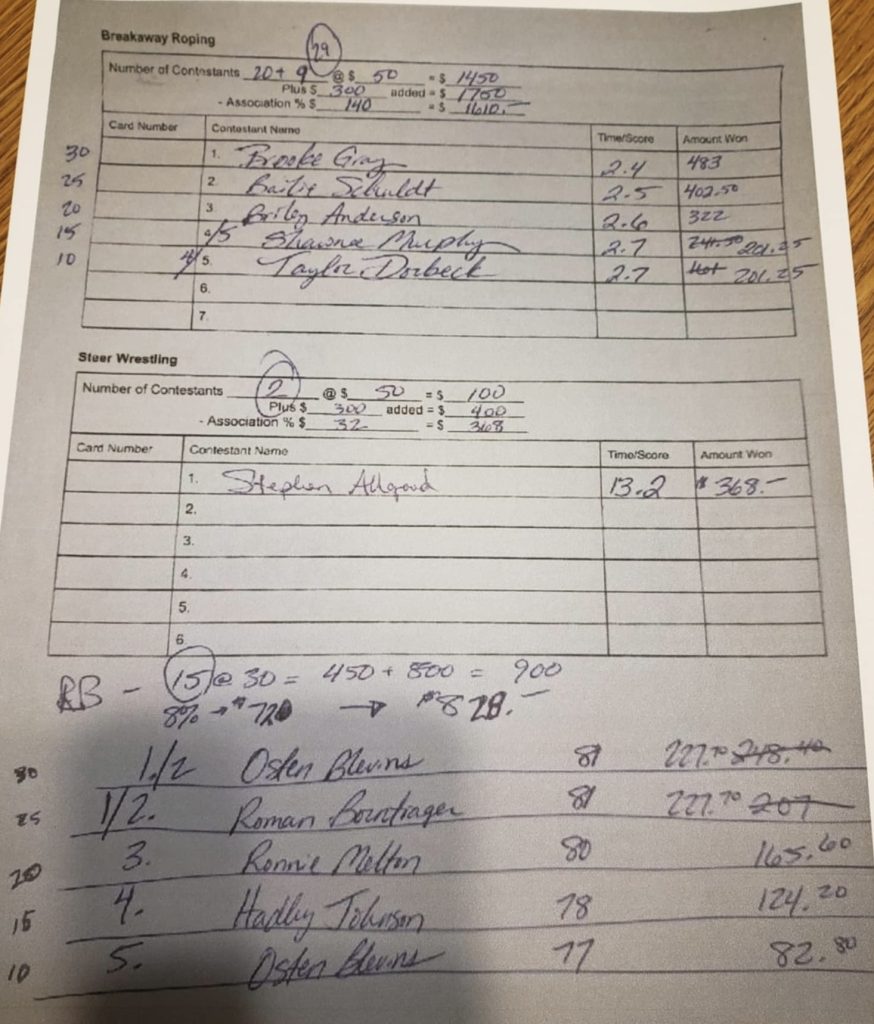 Breakaway Roping
29
Number of Contestants 20+9 @ $ 50 = $ 1450
Plus $ 300 added = $ 1750
- Association % $ 140 = $ 1610.—
Card Number Contestant Name Time/Score Amount Won
30 1. Brooke Gray 2.4 483
25 2. Bailie Schuldt 2.5 402.50
20 3. Brilen Anderson 2.6 322
15 4/5 Shawna Murphy 2.7 241.50 201.25
10 4/5. Taylor Dorbeck 2.7 201.25
6.
7.
Steer Wrestling
Number of Contestants 2 @ $ 50 = $ 100
Plus $ 300 added = $ 400
- Association % $ 32 = $ 368
Card Number Contestant Name Time/Score Amount Won
1. Stephen Allgood 13.2 $ 368.—
2.
3.
4.
5.
6.
RB – 15 @ 30 = 450 + 500 = 900
8% → $ 72 → $ 828.—
30 1/2 Osten Blevins 81 227.70 248.40
25 1/2. Roman Borntrager 81 227.70 207
20 3. Ronnie Melton 80 165.60
15 4. Hadley Johnson 78 124.20
10 5. Osten Blevins 77 82.80